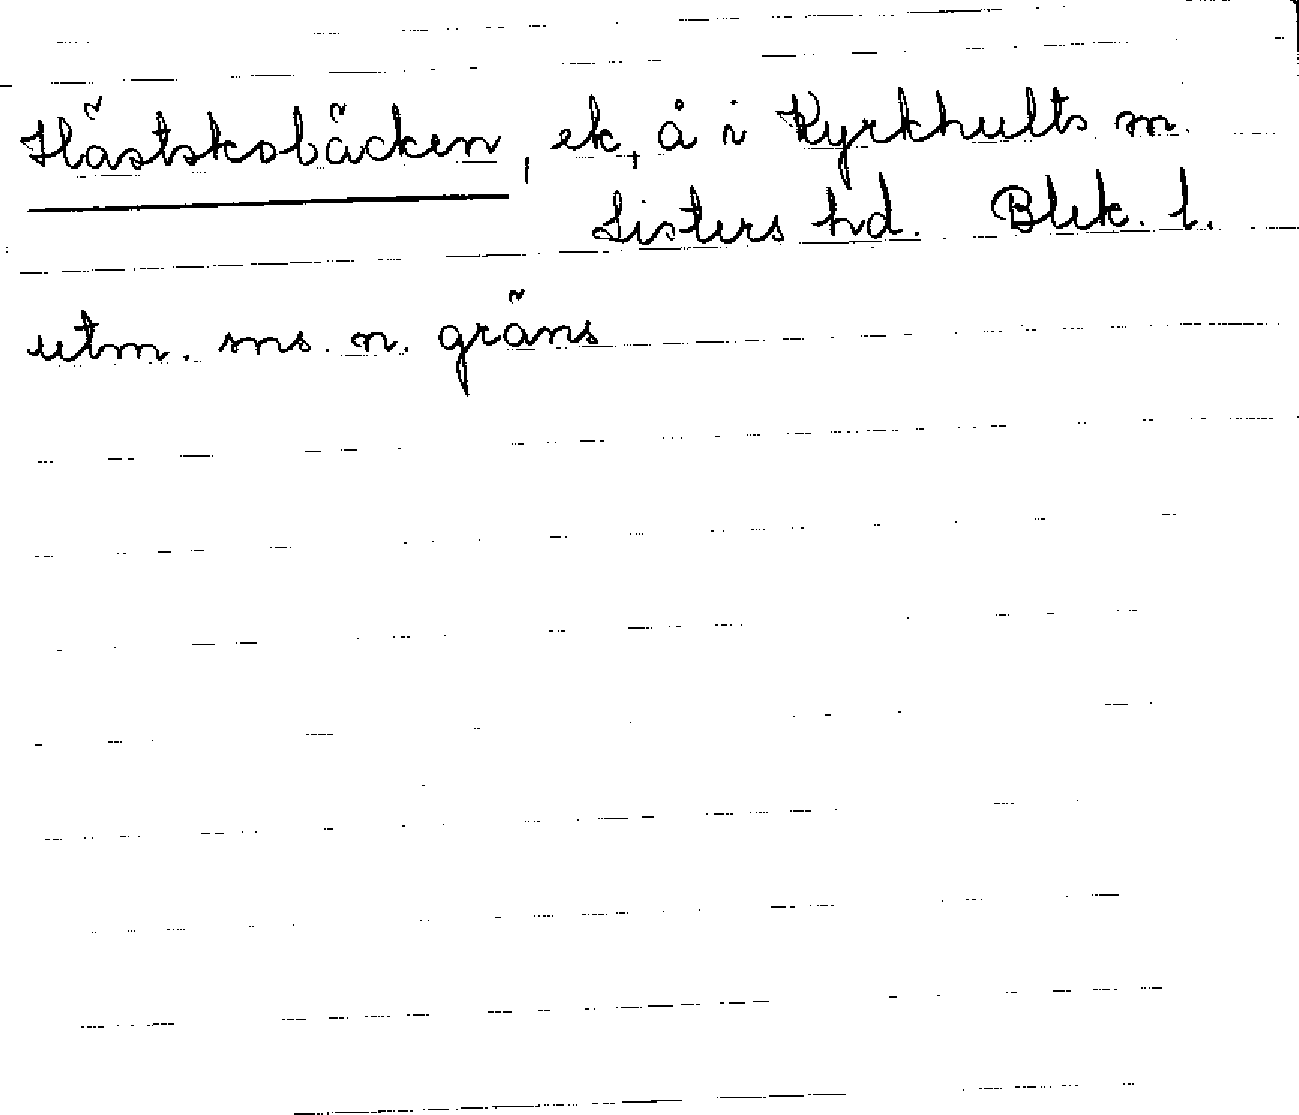 Hästskobäcken, ek, å i Kyrkhults sn.
Listers hd. Blek. l.
utm. sns. n. gräns